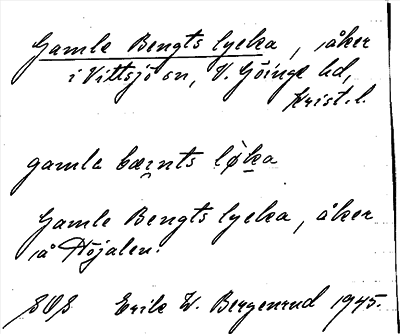 Gamle Bengts lycka, åker
i Vittsjö sn, V. Göinge hd,
Krist. l.
gamla bæṉts lø̱ka
Gamle Bengts lycka, åker
å Höjalen.
SOS Erik W. Bergenrud 1945.